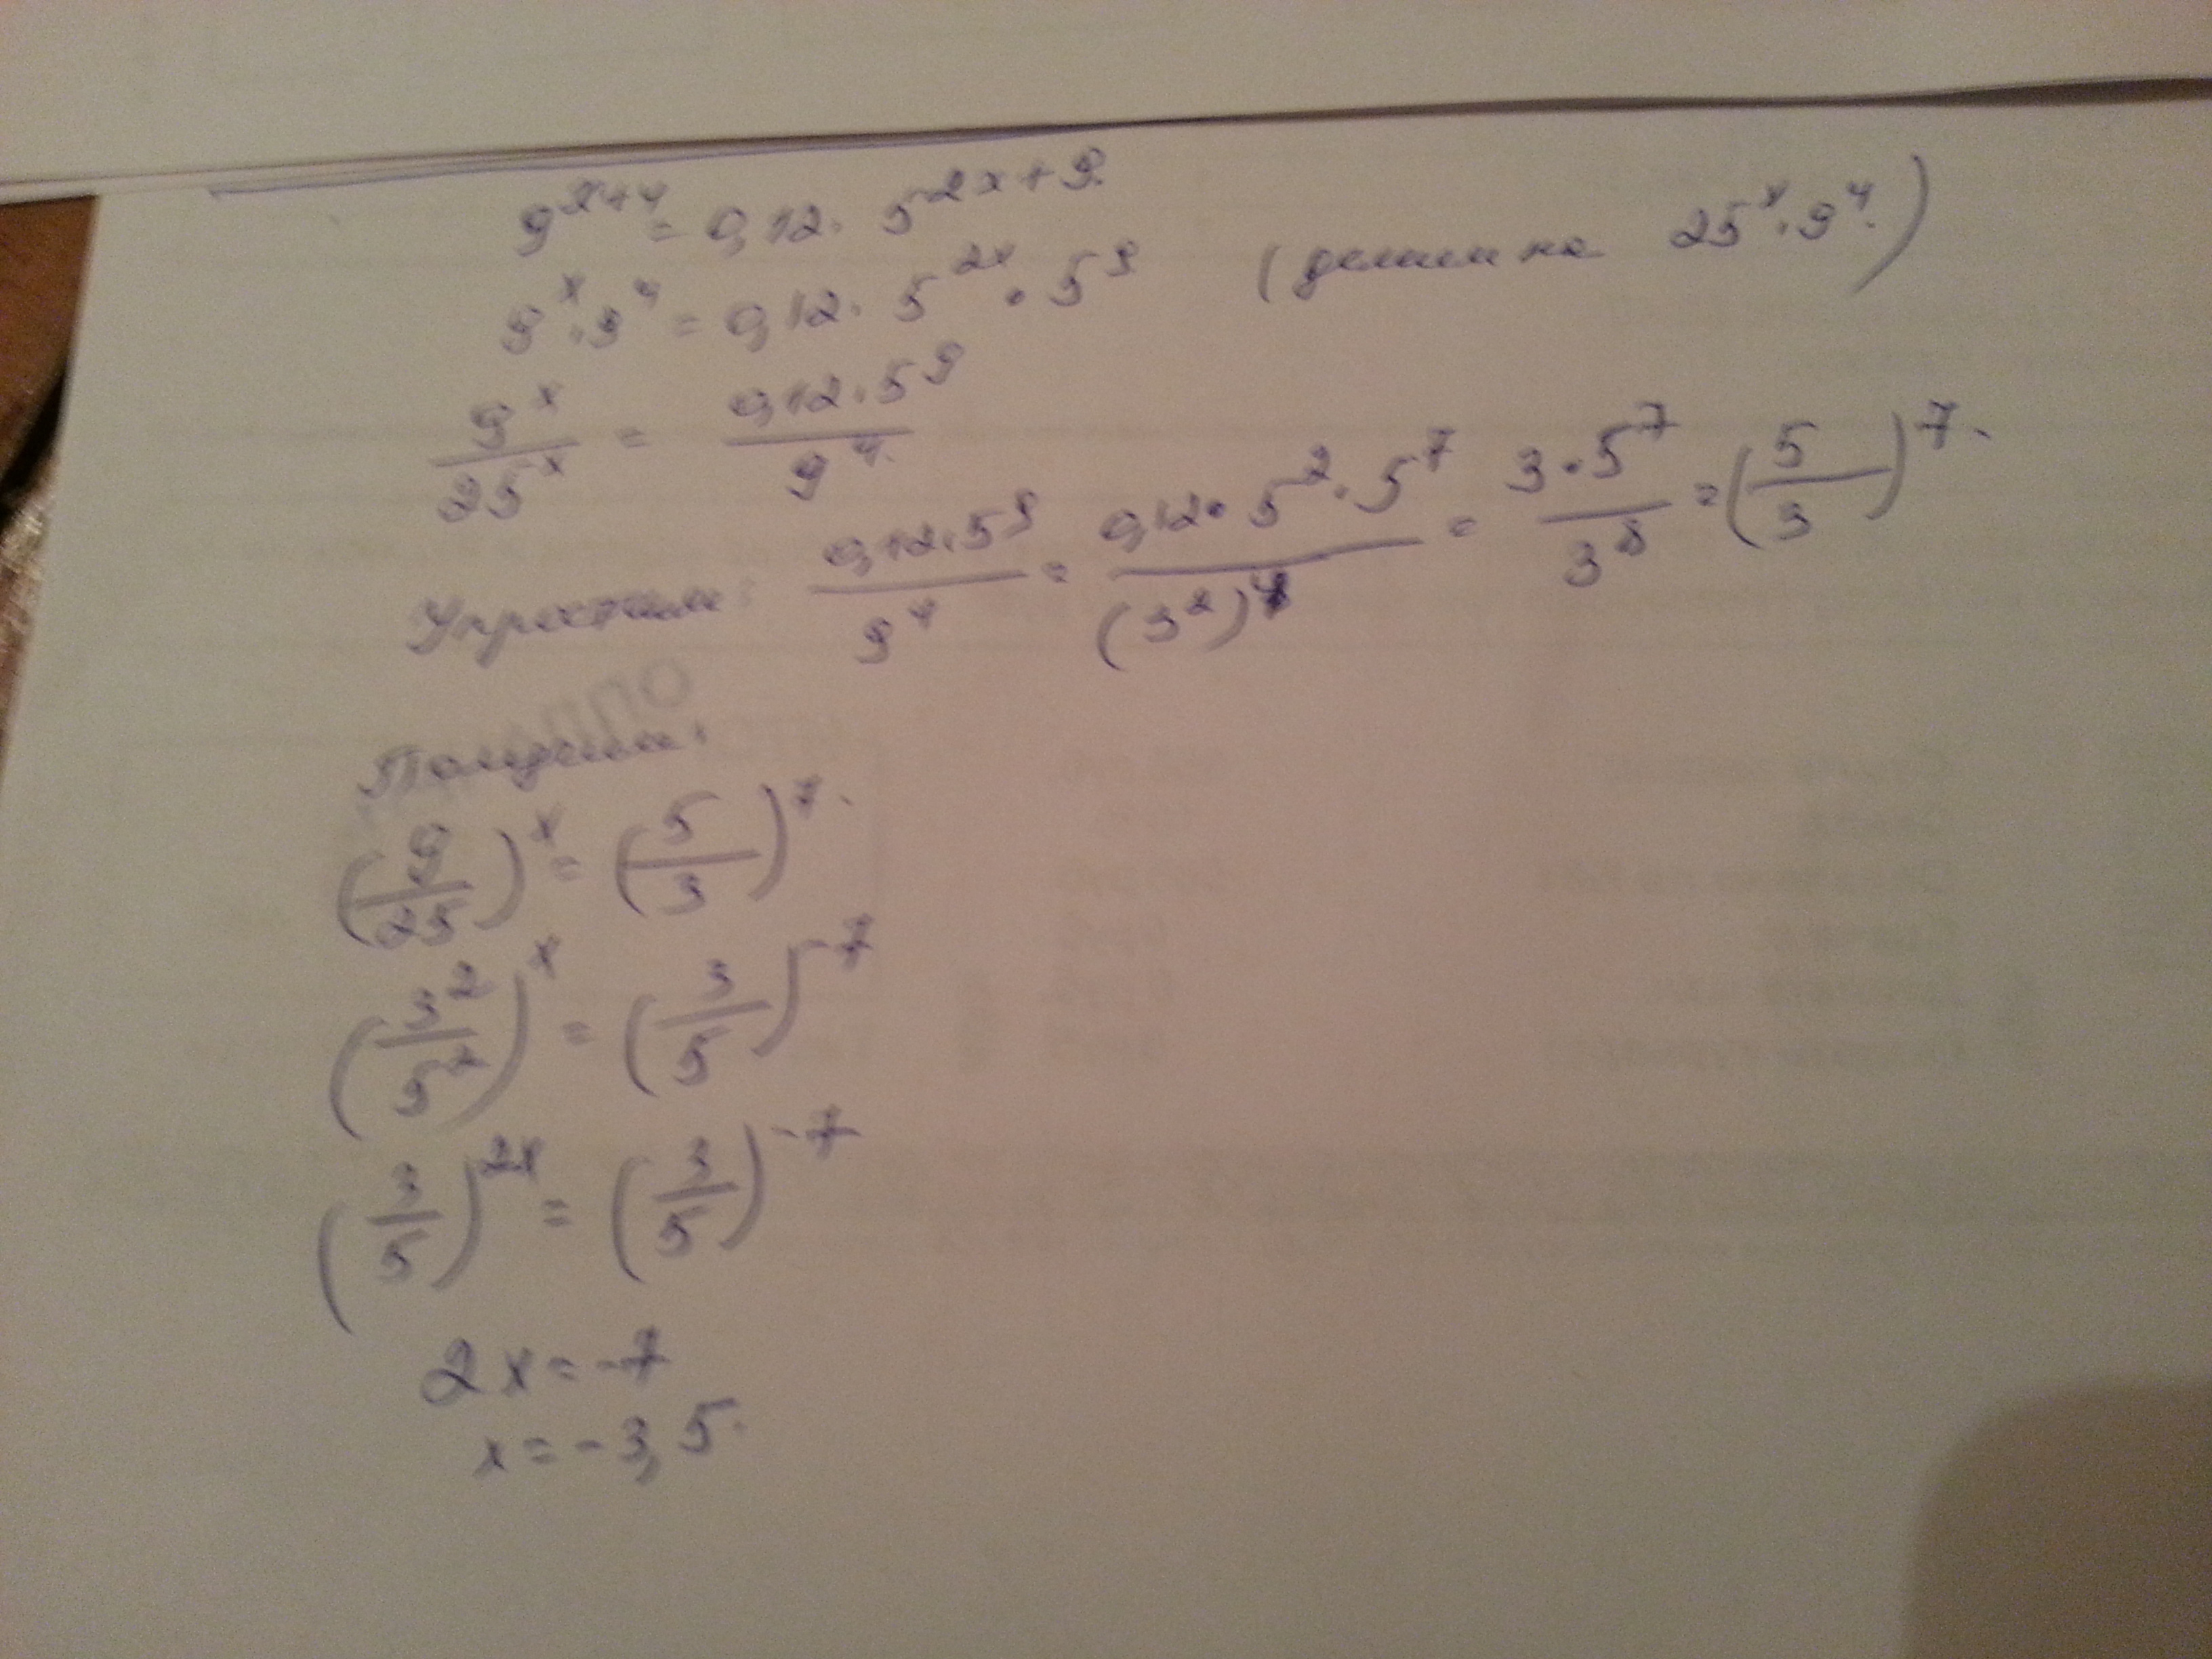 9^{x+4} = 0,12 · 5^{2x+9}
9^x · 9^4 = 0,12 · 5^{2x} · 5^9 (делим на 25^x · 9^4.)
\frac{9^x}{25^x} = \frac{0,12 · 5^9}{9^4}
Упростим: \frac{0,12 · 5^9}{9^4} = \frac{0,12 · 5^2 · 5^7}{(3^2)^4} = \frac{3 · 5^7}{3^8} = (\frac{5}{3})^7.
Получим:
(\frac{9}{25})^x = (\frac{5}{3})^7.
(\frac{3^2}{5^2})^x = (\frac{3}{5})^{-7}
(\frac{3}{5})^{2x} = (\frac{3}{5})^{-7}
2x = -7
x = -3,5.